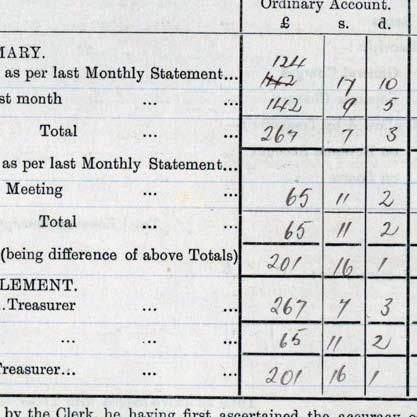 Ordinary Account.
£ s. d.
MARY.
124
as per last Monthly Statement... 142 17 10
st month ... ... 142 9 5
Total ... ... 267 7 3
as per last Monthly Statement...
Meeting ... ... 65 11 2
Total ... ... 65 11 2
(being difference of above Totals) 201 16 1
LEMENT.
..Treasurer ... ... 267 7 3
... ... 65 11 2
reasurer... ... ... 201 16 1
by the Clerk, he having first ascertained the accuracy o